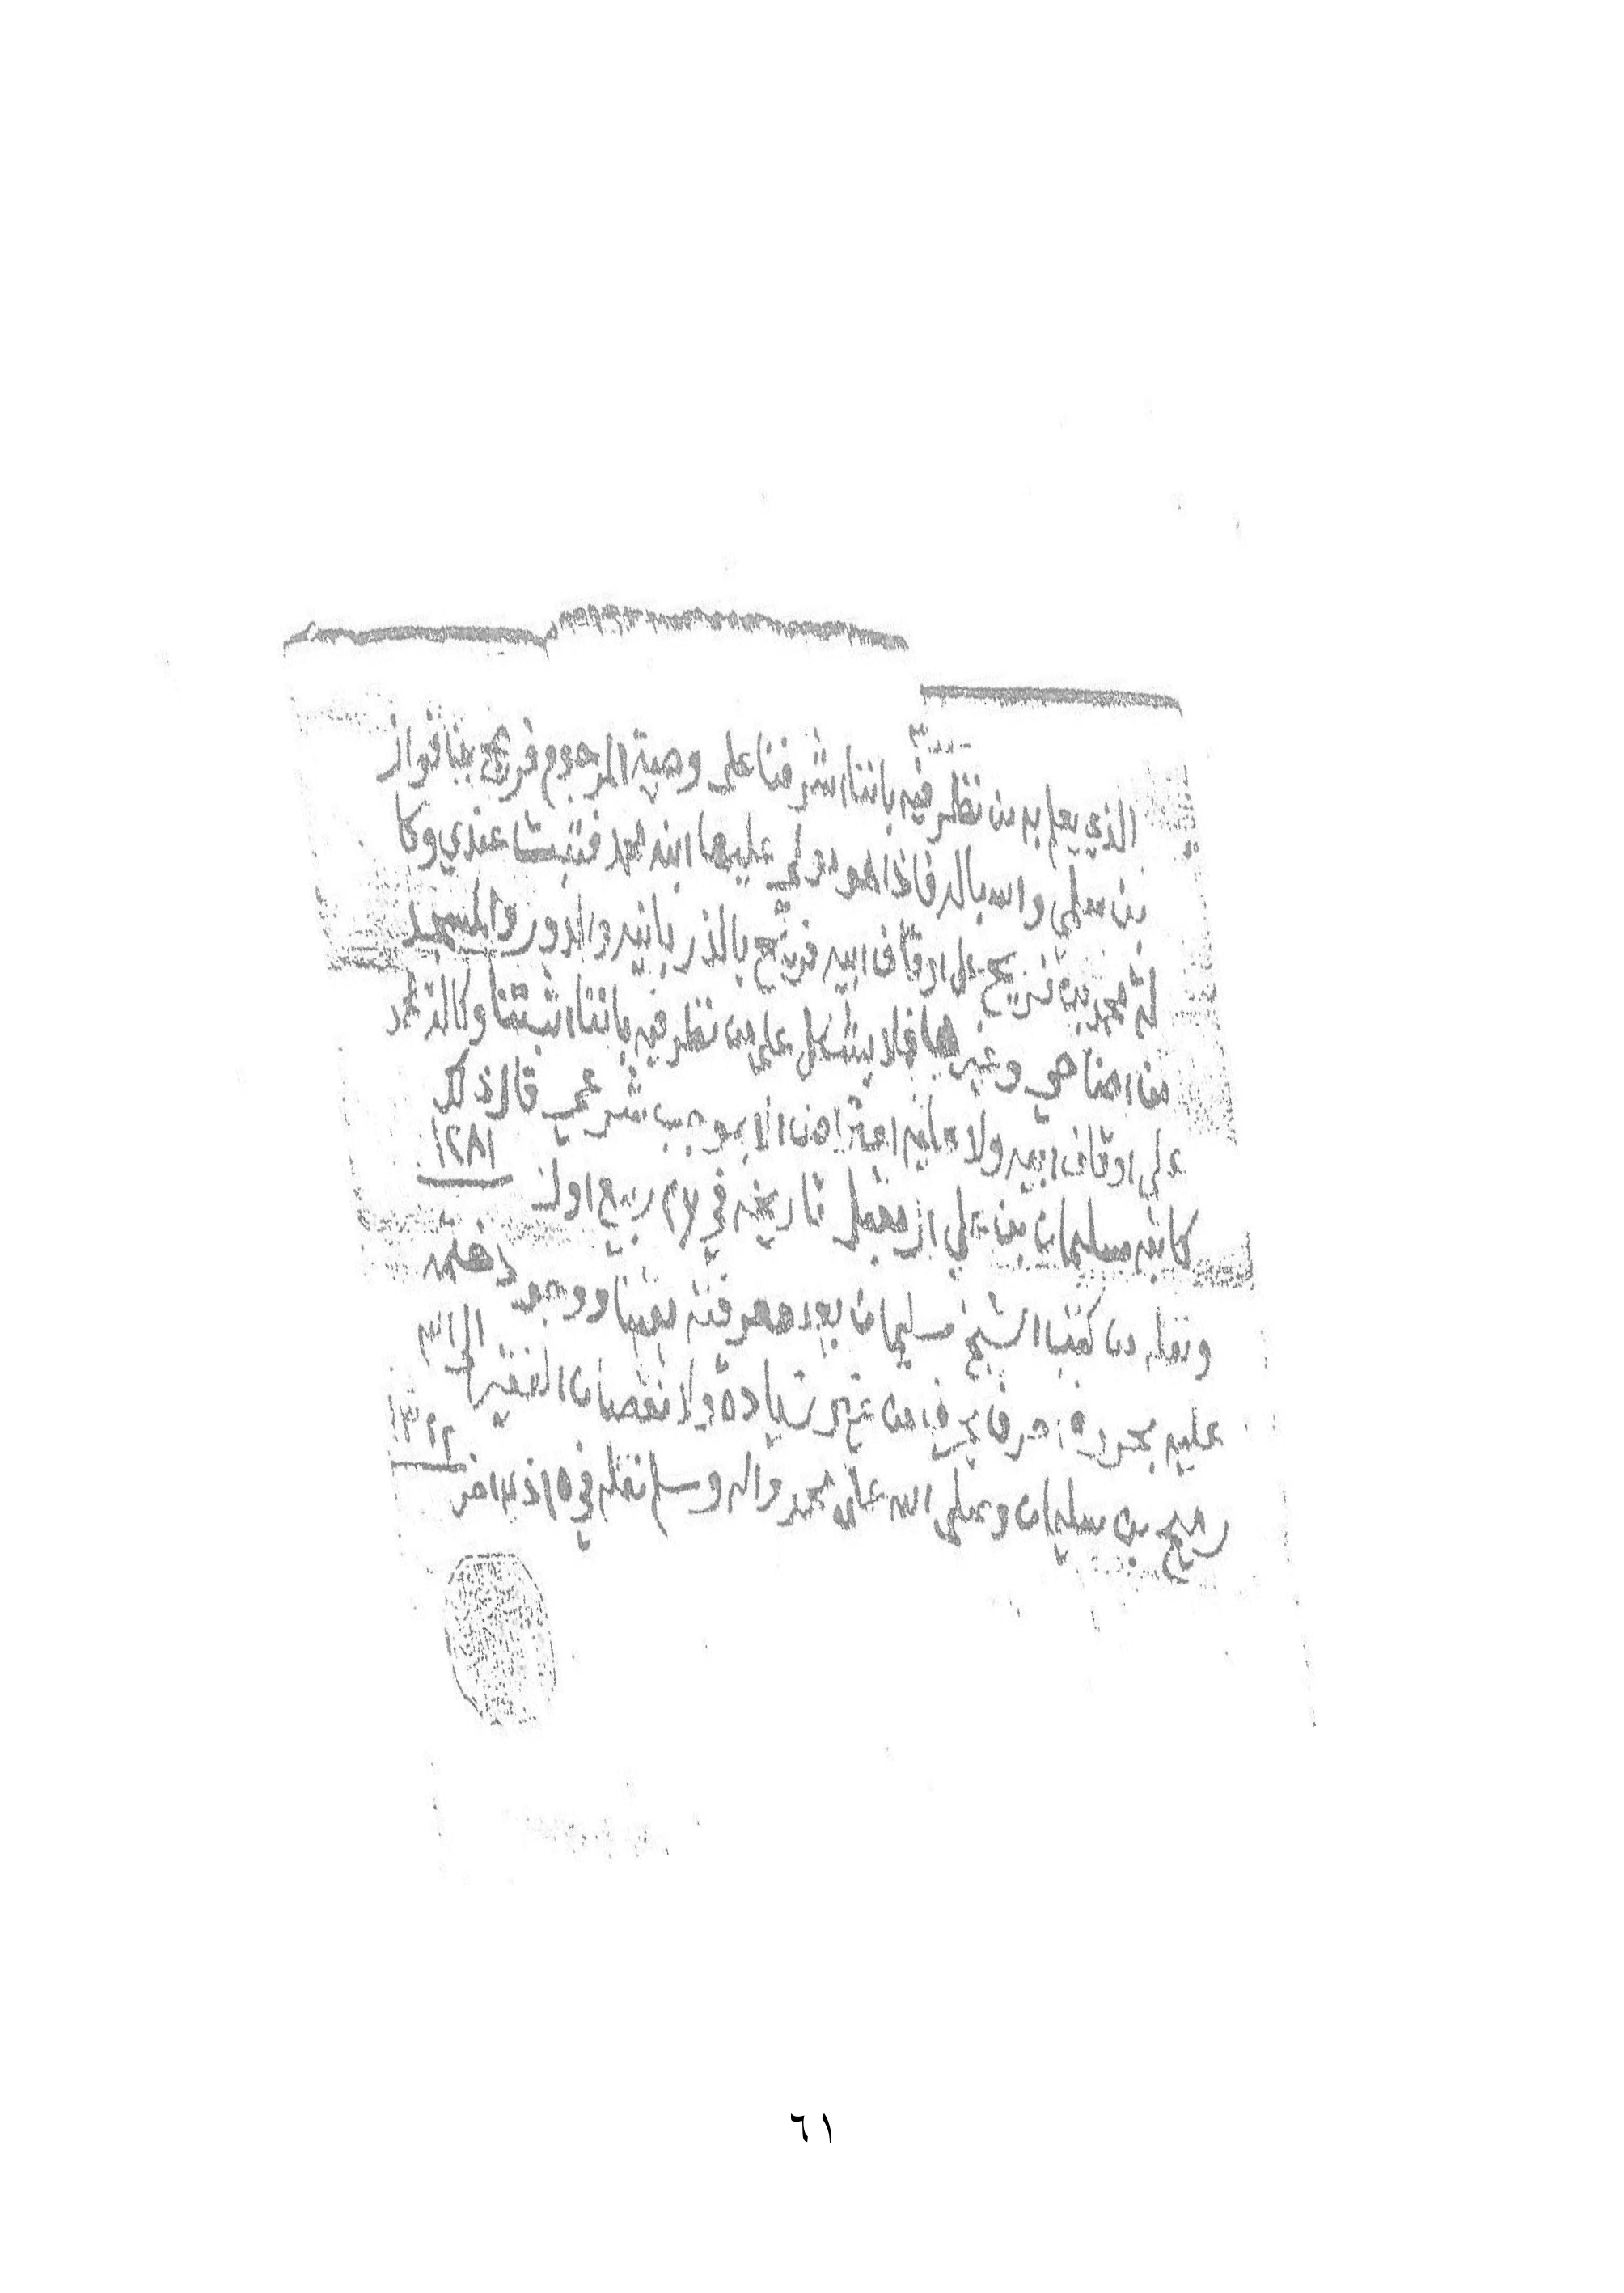 الذي يعلم به من نظر فيه باننا اشرفنا على وصية المرحوم فريح بن فواز
بن علي واسبالة فاذا هو مولي عليها ابنه محمد فثبت عندي وكا
لة محمد بن فريح على اوقاف ابيه فريح بالذربانيه والدور والمسجد
من وغيرها فلا يشكل على من نظر فيه باننا اثبتنا وكالة محمد
على اوقاف ابيه ولا عليه اعتراض الا بموجب شرعي قال ذلك
كاتبه سليمان بن علي ال مقبل تاريخه في ٢٧ ربيع اول ١٢٨١
ونقله من كتب الشيخ سليمان بعد معرفته يقينا ووجود ختمه
عليه بحروفه حرف بحرف من غير زيادة ولا نقصان الفقير الى الله
بن سليمان وصلى الله على محمد واله وسلم نقله في ١٥
٦١